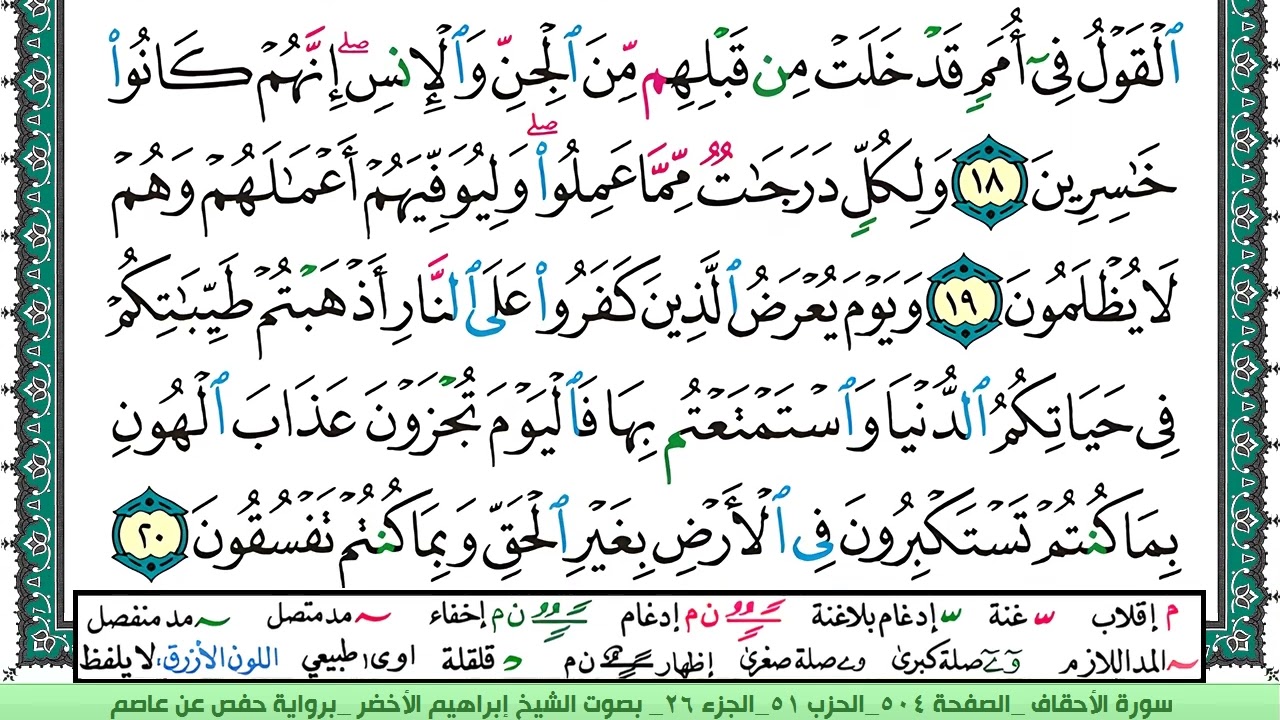 ٱلۡقَوۡلُ فِيٓ أُمَمٖ قَدۡ خَلَتۡ مِن قَبۡلِهِم مِّنَ ٱلۡجِنِّ وَٱلۡإِنسِۖ إِنَّهُمۡ كَانُواْ
خَٰسِرِينَ ١٨ وَلِكُلّٖ دَرَجَٰتٞ مِّمَّا عَمِلُواْۖ وَلِيُوَفِّيَهُمۡ أَعۡمَٰلَهُمۡ وَهُمۡ
لَا يُظۡلَمُونَ ١٩ وَيَوۡمَ يُعۡرَضُ ٱلَّذِينَ كَفَرُواْ عَلَى ٱلنَّارِ أَذۡهَبۡتُمۡ طَيِّبَٰتِكُمۡ
فِي حَيَاتِكُمُ ٱلدُّنۡيَا وَٱسۡتَمۡتَعۡتُم بِهَا فَٱلۡيَوۡمَ تُجۡزَوۡنَ عَذَابَ ٱلۡهُونِ
بِمَا كُنتُمۡ تَسۡتَكۡبِرُونَ فِي ٱلۡأَرۡضِ بِغَيۡرِ ٱلۡحَقِّ وَبِمَا كُنتُمۡ تَفۡسُقُونَ ٢٠
م إقلاب غنة إدغام بلاغنة ن م إدغام ن م إخفاء مد متصل مد منفصل
المد اللازم صلة كبرى صلة صغرى إظهار ن م قلقلة اوى طبيعي اللون الأزرق: لا يلفظ
سورة الأحقاف _الصفحة ٥٠٤_الحزب ٥١_الجزء ٢٦_ بصوت الشيخ إبراهيم الأخضر _برواية حفص عن عاصم